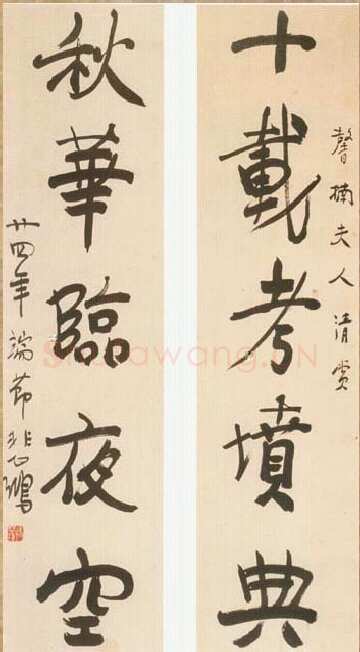 馨楠夫人清赏
十载考墳典
秋華臨夜空
廿四年端节悲鴻
Shufawang.CN